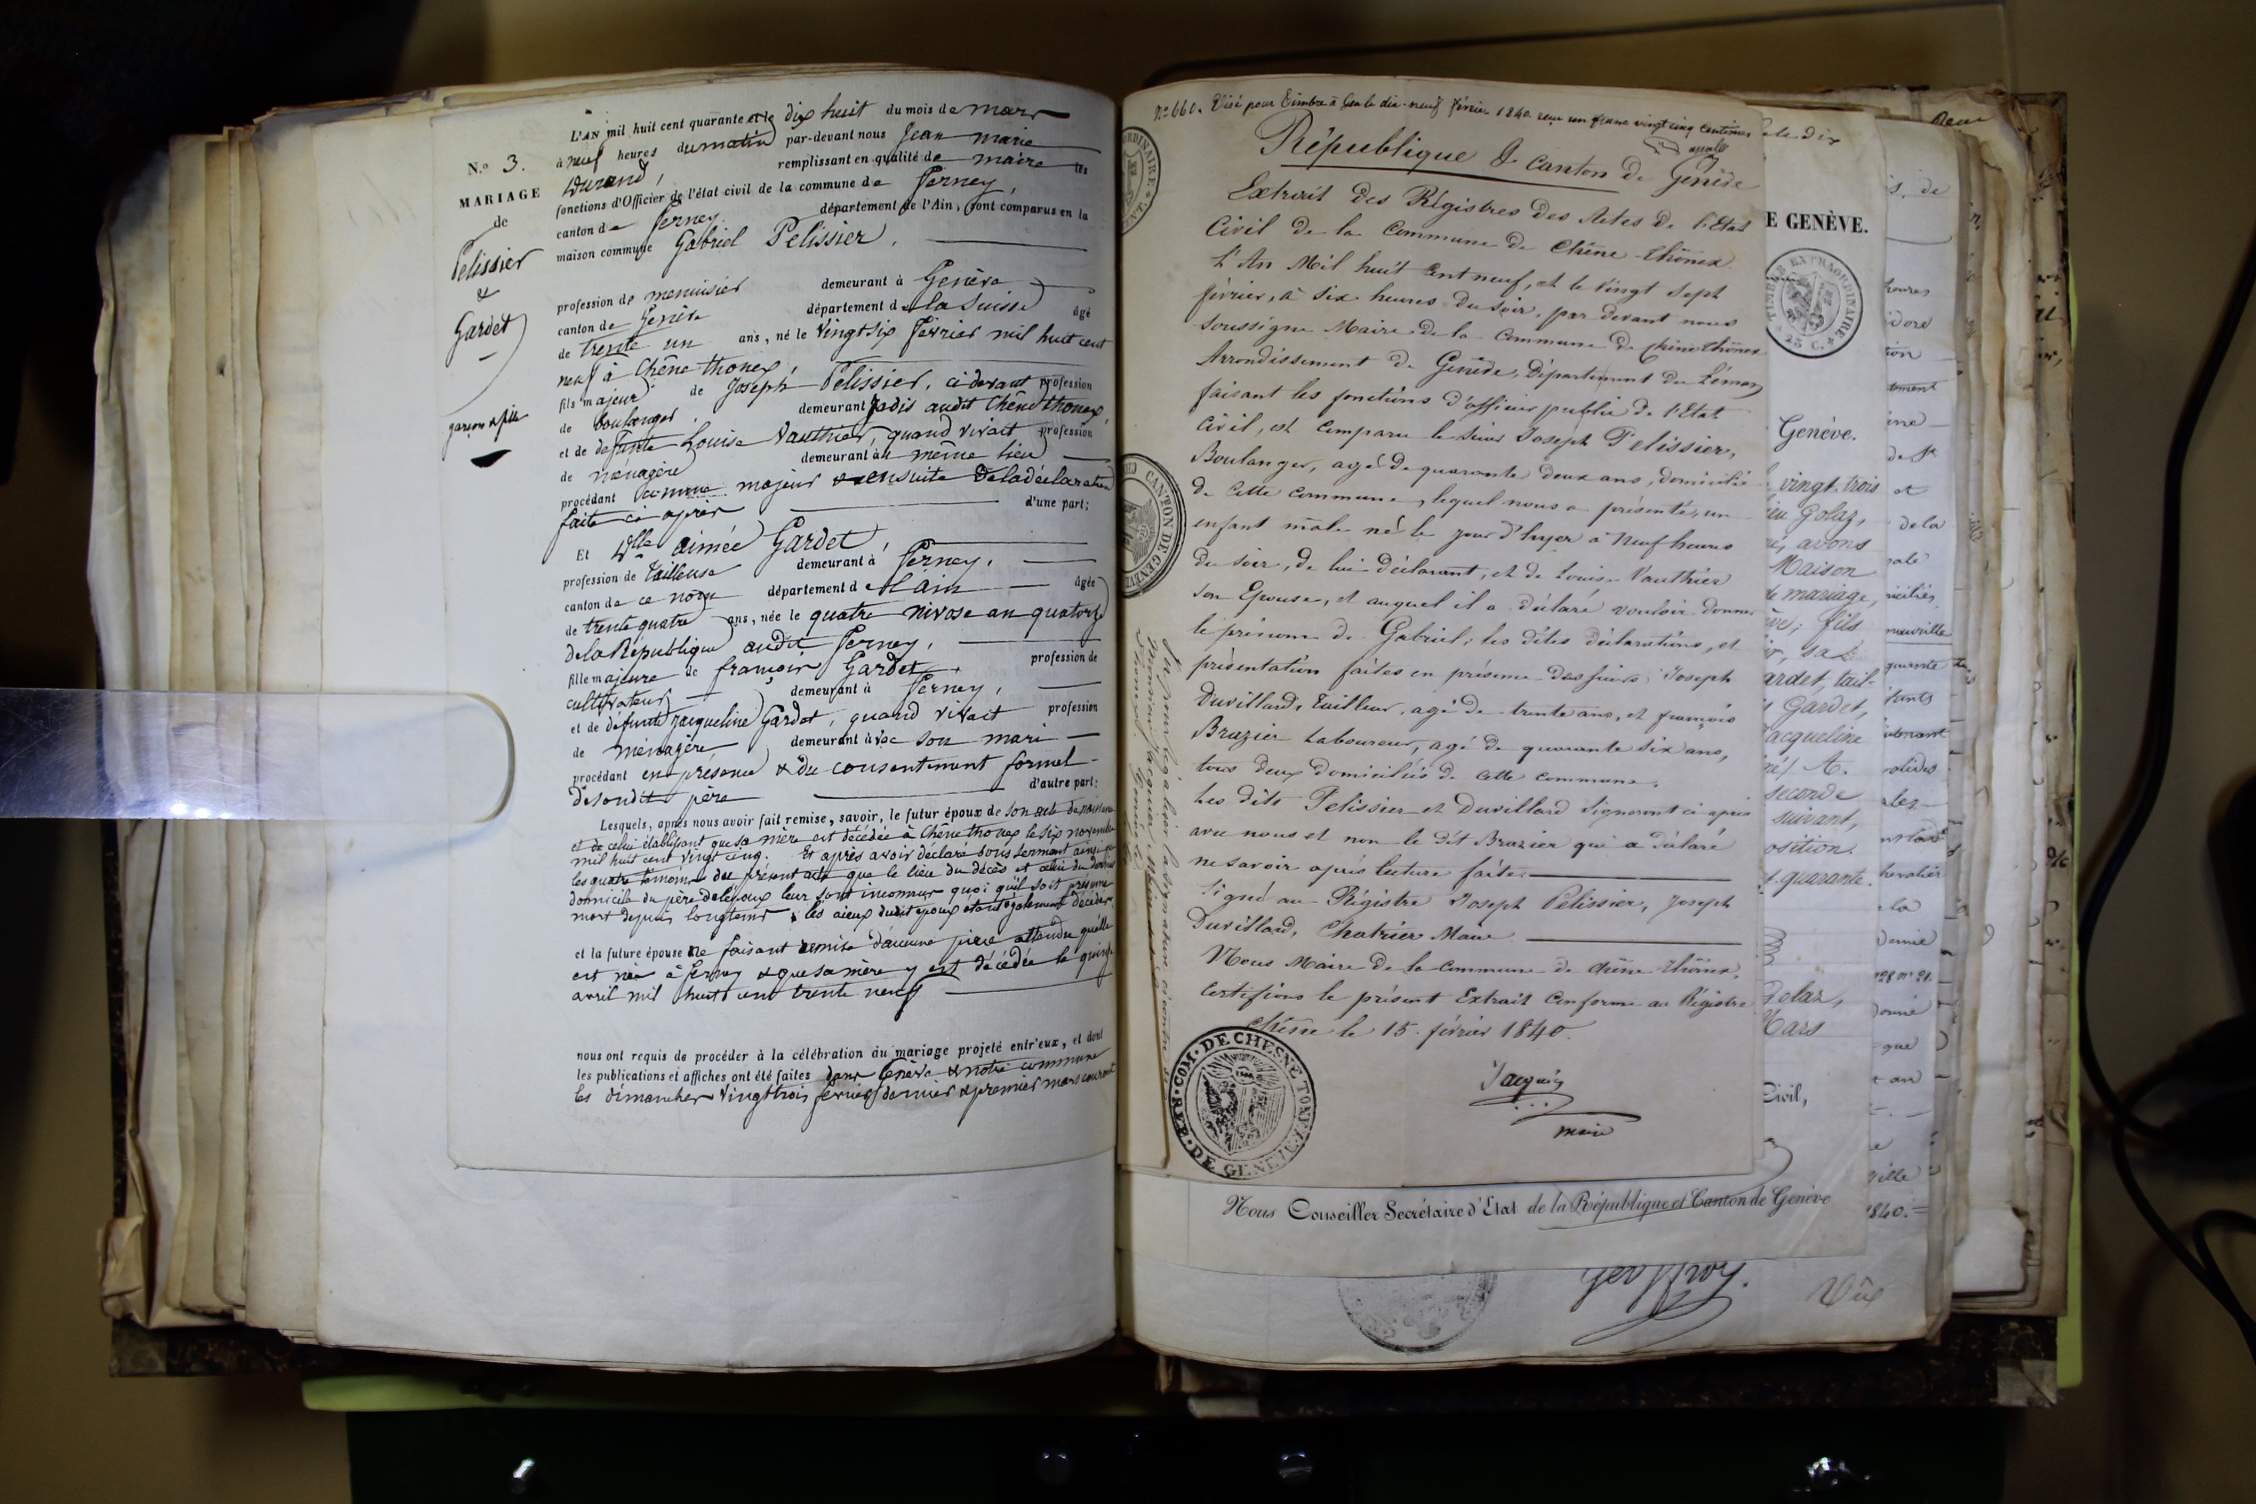 L'AN mil huit cent quarante et le dix huit du mois de mars
à neuf heures du matin par-devant nous Jean marie
Durand, remplissant en qualité de maire les
fonctions d'Officier de l'état civil de la commune de Ferney,
canton de Ferney département de l'Ain, sont comparus en la
maison commune Gabriel Pelissier,
N.º 3.
MARIAGE
de
Pelissier
&
Gardet
garçon & fille
profession de menuisier demeurant à Genève
canton de Genève département de la Suisse âgé
de trente un ans, né le vingt six février mil huit cent
neuf à Chêne thonex,
fils majeur de Joseph Pelissier, ci devant profession
de boulanger demeurant jadis audit Chêne thonex,
et de defunte Louise Vauthier, quand vivait profession
de ménagère demeurant au même lieu
procédant comme majeur & ensuite de la déclaration
faite ci après d'une part;
Et Dlle aimée Gardet,
profession de tailleuse demeurant à Ferney,
canton de ce nom département de l'ain âgée
de trente quatre ans, née le quatre nivose an quatorze
de la République audit Ferney,
fille majeure de françois Gardet, profession de
cultivateur demeurant à Ferney,
et de défunte jacqueline Gardet, quand vivait profession
de ménagère demeurant avec son mari
procédant en présence & du consentement formel
de sondit père d'autre part;
Lesquels, après nous avoir fait remise, savoir, le futur époux de son acte de naissance
et de celui établissant que sa mère est décédée à Chêne thonex le six novembre
mil huit cent vingt cinq. Et après avoir déclaré sous serment ainsi que
les quatre témoins du présent acte que le lieu du décès et celui du dernier
domicile du père de l'époux leur sont inconnus quoi qu'il soit présumé
mort depuis longtems, les aieux dudit époux étant également décédés
et la future épouse ne faisant remise d'aucune pièce attendu qu'elle
est née à Ferney & que sa mère y est décédée le quinze
avril mil huit cent trente neuf
nous ont requis de procéder à la célébration du mariage projeté entr'eux, et dont
les publications et affiches ont été faites dans Genève & notre commune
les dimanches vingt trois février dernier & premier mars courant
Nº 660. Visé pour Timbre à Gex le dix-neuf février 1840. reçu un franc vingt cinq centimes
République & Canton de Genève
Extrait des Régistres des Actes de l'Etat
Civil de la Commune de Chêne-Thônex
L'An Mil huit Cent neuf, et le Vingt Sept
février, à six heures du soir, par devant nous
soussigné Maire de la Commune de Chêne thônex
Arrondissement de Genève, Département du Léman
faisant les fonctions d'officier public de l'Etat
Civil, est Comparu le sieur Joseph Pelissier,
Boulanger, agé de quarante deux ans, domicilié
de Cette Commune, lequel nous a présenté, un
enfant mâle né le jour d'hyer à Neuf heures
du soir, de lui déclarant, et de Louise Vauthier
son Epouse, et auquel il a déclaré vouloir donner
le prénom de Gabriel; les dites déclarations, et
présentation faites en présence des sieurs Joseph
Duvillard, Tailleur, agé de trente ans, et françois
Brazier Laboureur, agé de quarante six ans,
tous deux domiciliés de Cette Commune.
Les dits Pelissier et Duvillard signeront ci après
avec nous et non le dit Brazier qui a déclaré
ne savoir après lecture faite.
Signé au Régistre Joseph Pelissier, Joseph
Duvillard, Chatrier Maire
Nous Maire de la Commune de Chêne thônex,
Certifions le présent Extrait Conforme au Régistre
Chêne le 15. février 1840.
Jacquin
maire
RÉP. COM. DE CHESNE TONEX. DE GENEVE
CANTON DE GENEVE
E GENÈVE.
TIMBRE EXTRAORDINAIRE
25 C.
Genève.
vingt trois
Golaz,
avons
Maison
de mariage,
fils
sa
ardet, tail-
Gardet,
acqueline
A.
seconde
suivant,
osition.
quarante.
Golaz,
Mars
Civil,
Nous Conseiller Secrétaire d'Etat de la République et Canton de Genève
1840.
Vû